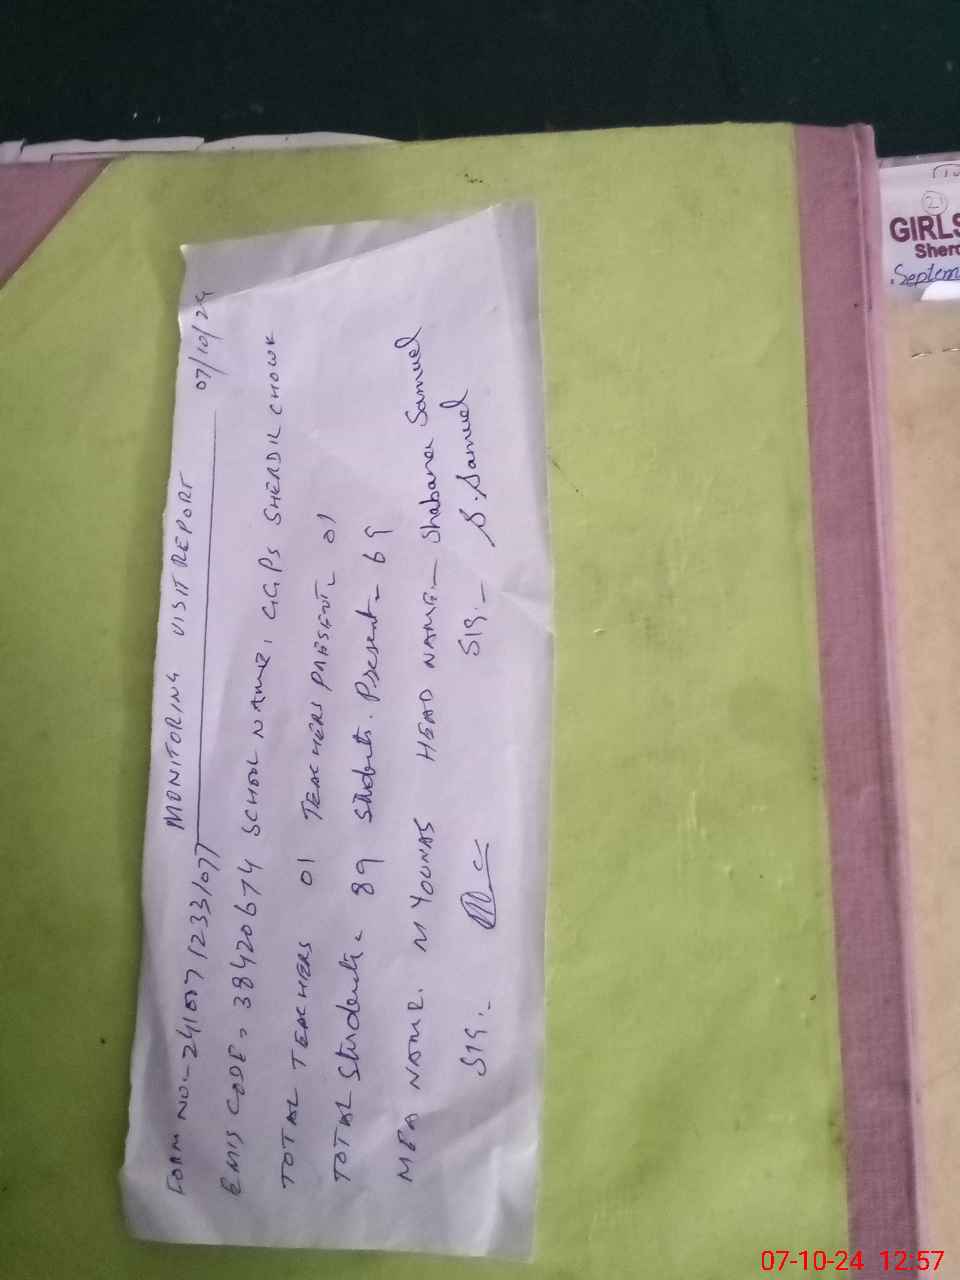 FORM NO:- 2410071233107T MONITORING VISIT REPORT 07/10/24
EMIS CODE:- 38420674 SCHOOL NAME: GGPS SHERDIL CHOWK
TOTAL TEACHERS 01 TEACHERS PRESENT- 01
TOTAL Students- 89 Students. Present- 69
MEA NAME. M YOUNAS HEAD NAME:- Shabana Samuel
SIG:- SIG:- S.Samuel
21
GIRLS
Sher
Septem
07-10-24 12:57